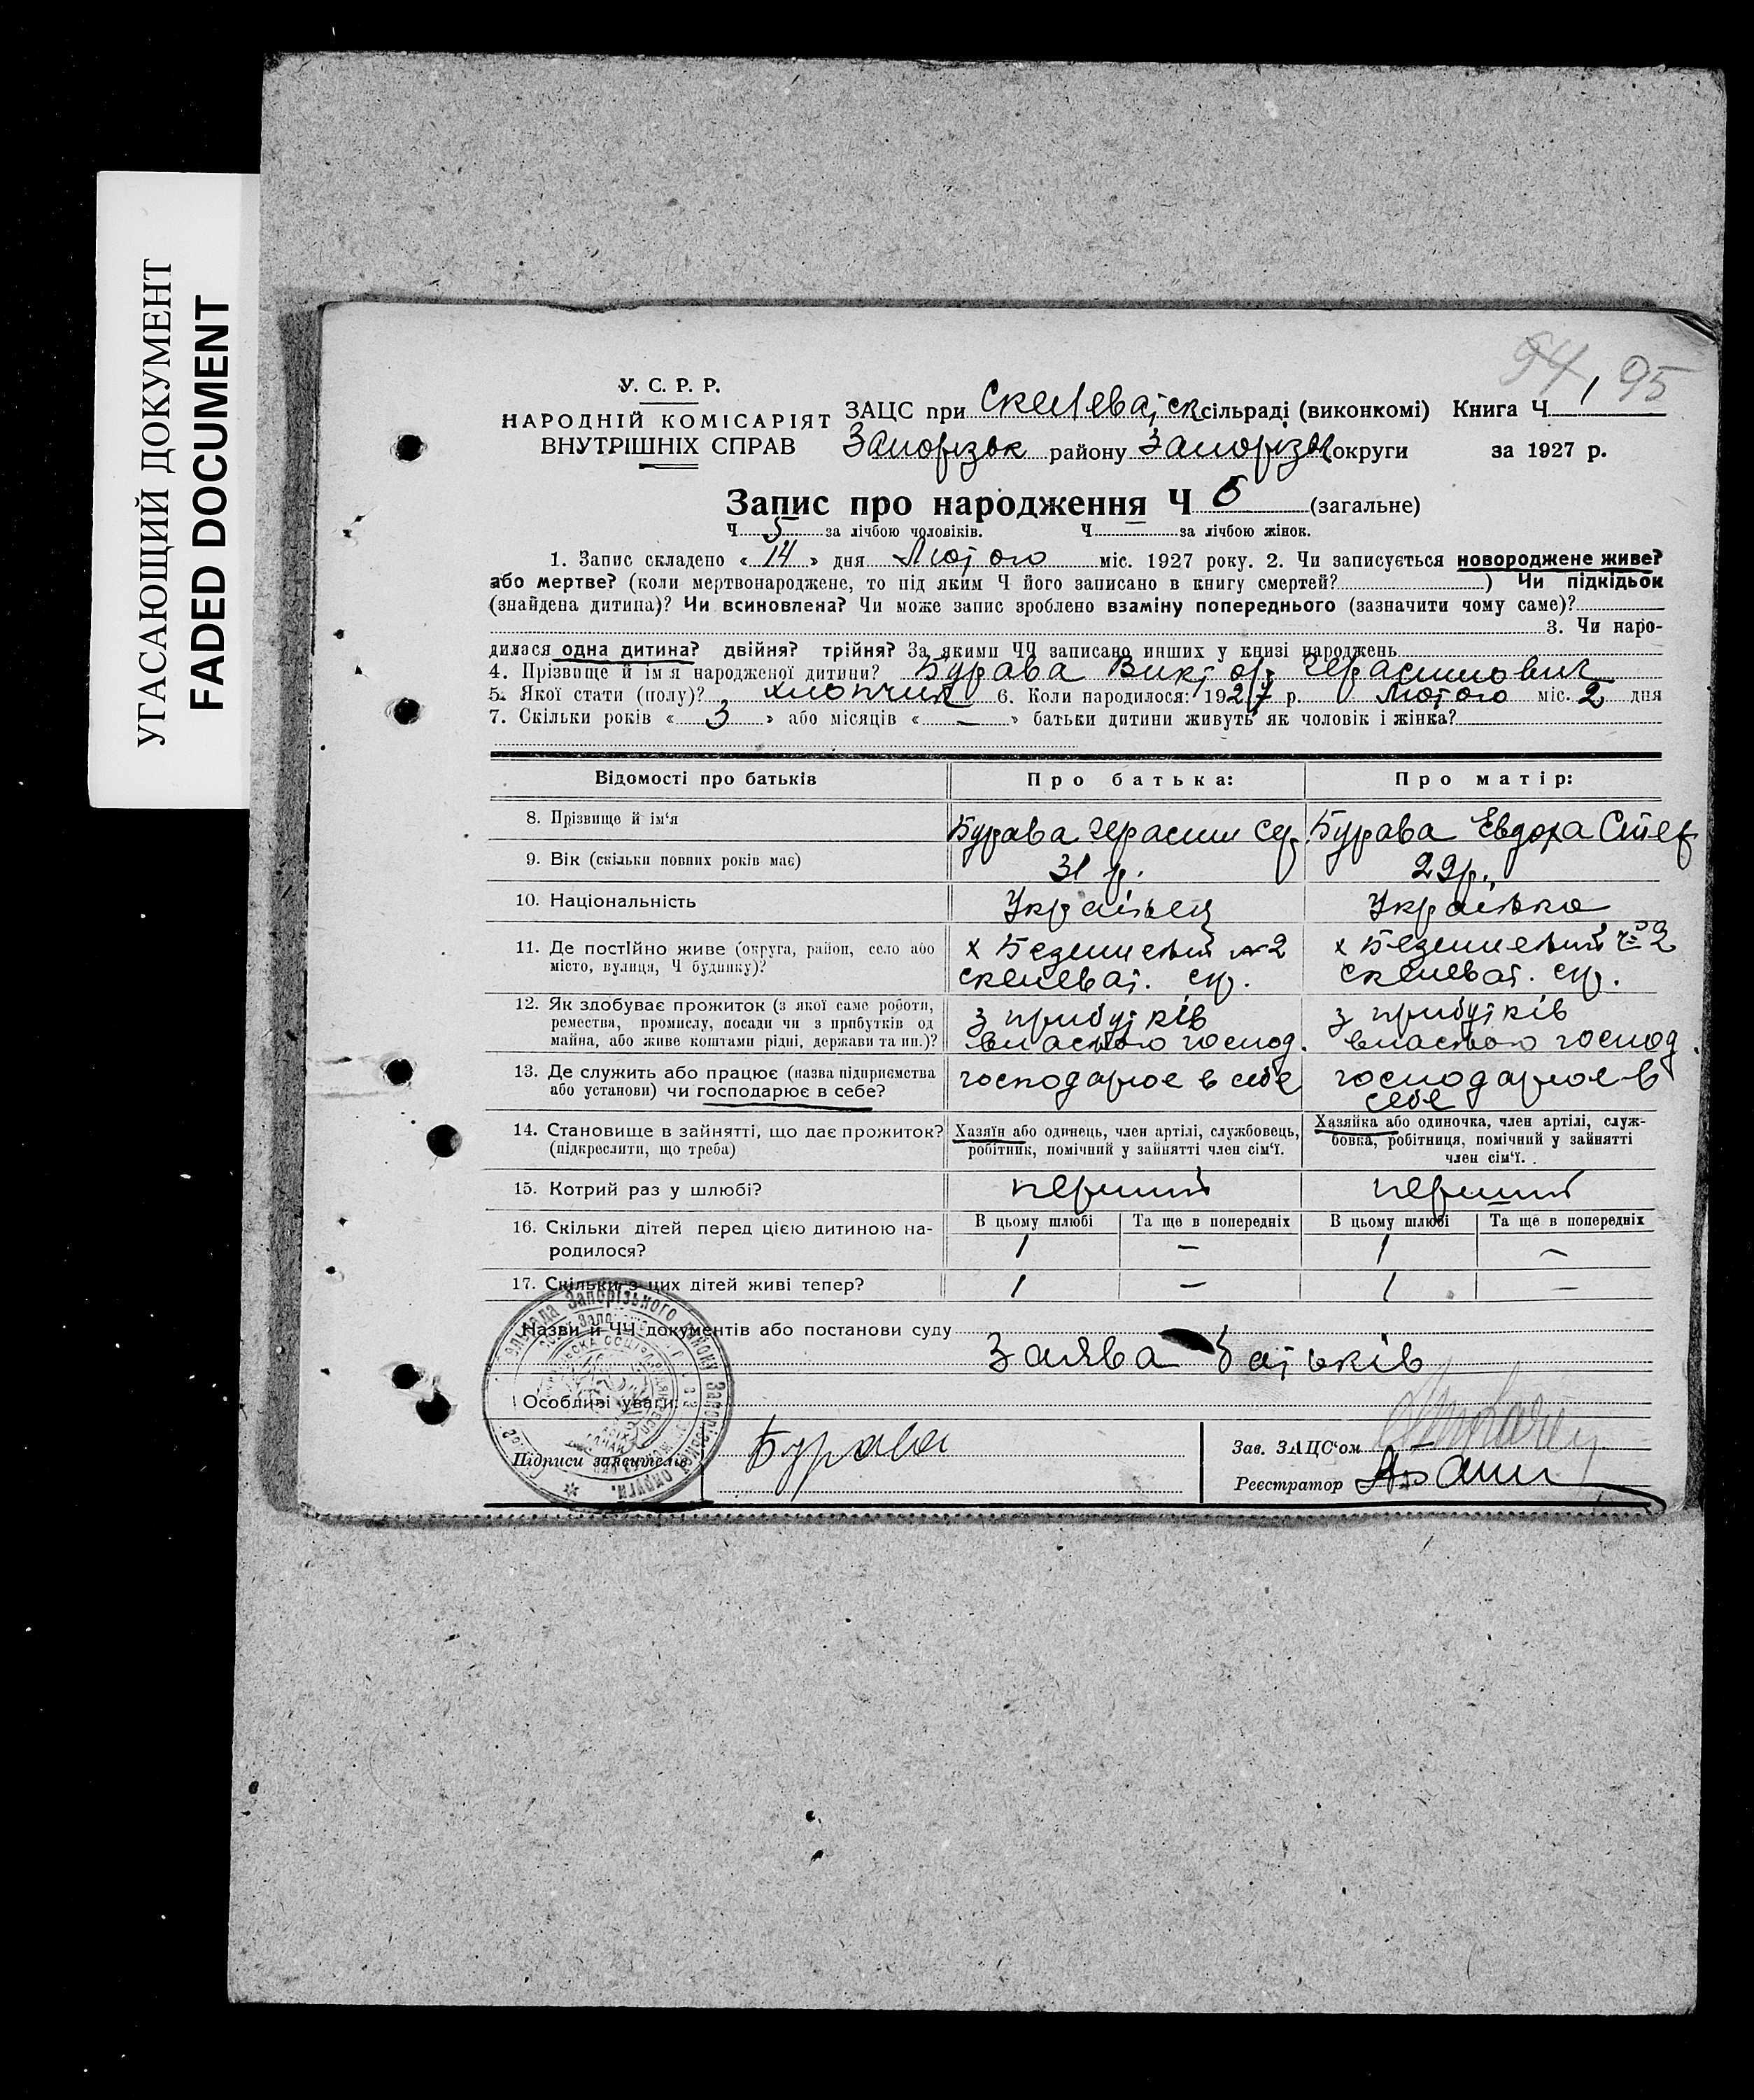 УГАСАЮЩИЙ ДОКУМЕНТ
FADED DOCUMENT
94, 95
У. С. Р. Р.
НАРОДНІЙ КОМІСАРІЯТ
ВНУТРІШНІХ СПРАВ
ЗАЦС при Скелеватск сільраді (виконкомі) Книга Ч 1
Запорізьк району Запорізьк округи за 1927 р.
Запис про народження Ч 6 (загальне)
Ч 5 за лічбою чоловіків. Ч за лічбою жінок.
1. Запис складено « 14 » дня Лютого міс. 1927 року. 2. Чи записується новороджене живе?
або мертве? (коли мертвонароджене, то під яким Ч його записано в книгу смертей? ) Чи підкідьок
(знайдена дитина)? Чи всиновлена? Чи може запис зроблено взаміну попереднього (зазначити чому саме)?
3. Чи наро-
дилася одна дитина? двійня? трійня? За якими ЧЧ записано инших у книзі народжень
4. Прізвище й ім'я народженої дитини? Бурава Виктор Герасимович
5. Якої стати (полу)? хлопчик 6. Коли народилося: 1927 р. Лютого міс. 2 дня
7. Скільки років « 3 » або місяців « — » батьки дитини живуть як чоловік і жінка?
Відомості про батьків Про батька: Про матір:
8. Прізвище й ім'я Бурава Герасим Сер. Бурава Евдоха Степ
9. Вік (скільки повних років має) 31 р. 29 р.
10. Національність Українец Українка
11. Де постійно живе (округа, район, село або
місто, вулиця, Ч будинку)?
х 2
скелеват. ср.
х 2
скелеват. ср.
12. Як здобуває прожиток (з якої саме роботи,
ремества, промислу, посади чи з прибутків од
майна, або живе коштами рідні, держави та ин.)?
з прибутків
власного господ.
з прибутків
власного господ.
13. Де служить або працює (назва підприємства
або установи) чи господарює в себе?
господарює в себе
господарює в
себе
14. Становище в зайнятті, що дає прожиток?
(підкреслити, що треба)
Хазяїн або одинець, член артілі, службовець,
робітник, помічний у зайнятті член сім'ї.
Хазяйка або одиночка, член артілі, служ-
бовка, робітниця, помічний у зайнятті
член сім'ї.
15. Котрий раз у шлюбі? перший перший
16. Скільки дітей перед цією дитиною на-
родилося?
В цьому шлюбі Та ще в попередніх В цьому шлюбі Та ще в попередніх
1 — 1 —
17. Скільки з цих дітей живі тепер? 1 — 1 —
Назви й ЧЧ документів або постанови суду
Заява батьків
Особливі уваги:
Підписи заявителів Бурава
Зав. ЗАЦС'ом
Реєстратор
Запорізького району Запорізької округи.